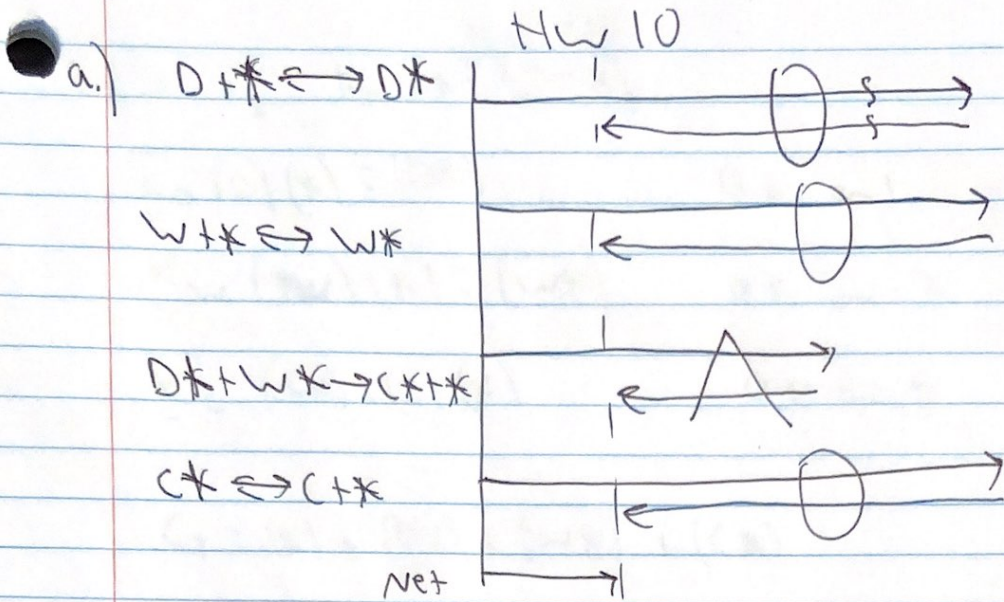 HW 10
a.) D + * ⟷ D*
W + * ⟷ W*
D* + W* → C* + *
C* ⟷ C + *
Net